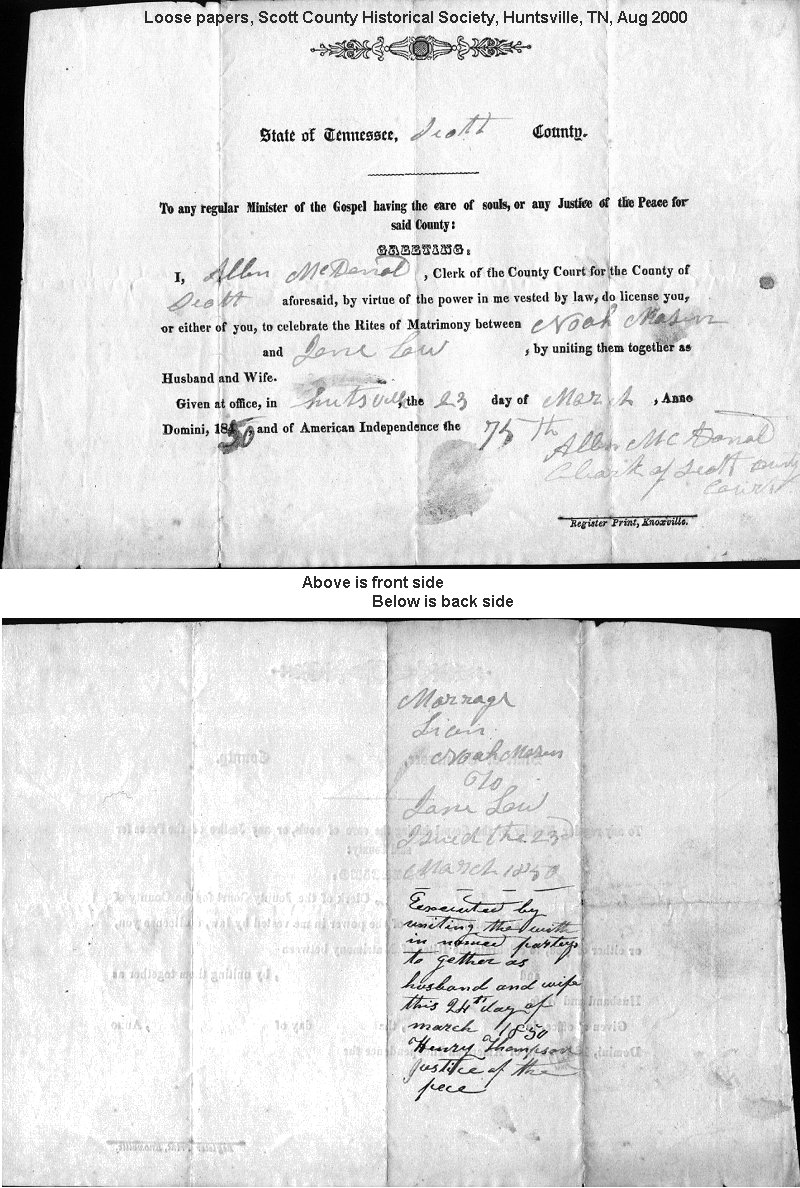 Loose papers, Scott County Historical Society, Huntsville, TN, Aug 2000
State of Tennessee, Scott County.
To any regular Minister of the Gospel having the care of souls, or any Justice of the Peace for
said County:
GREETING:
I, Allen McDonal, Clerk of the County Court for the County of
Scott aforesaid, by virtue of the power in me vested by law, do license you,
or either of you, to celebrate the Rites of Matrimony between Noah Mason
and Jane Law, by uniting them together as
Husband and Wife.
Given at office, in Huntsvill, the 23 day of March, Anno
Domini, 1850, and of American Independence the 75th
Allen McDonal
Clark of Scott County
Court
Register Print, Knoxville.
Above is front side
Below is back side
Marrage
Noah Mason
To
Jane Law
Isued the 23
March 1850
Executed by
uniting the with
in named partys
to gether as
husband and wife
this 24th day of
march 1850
Henry Thompson
justice of the
pece